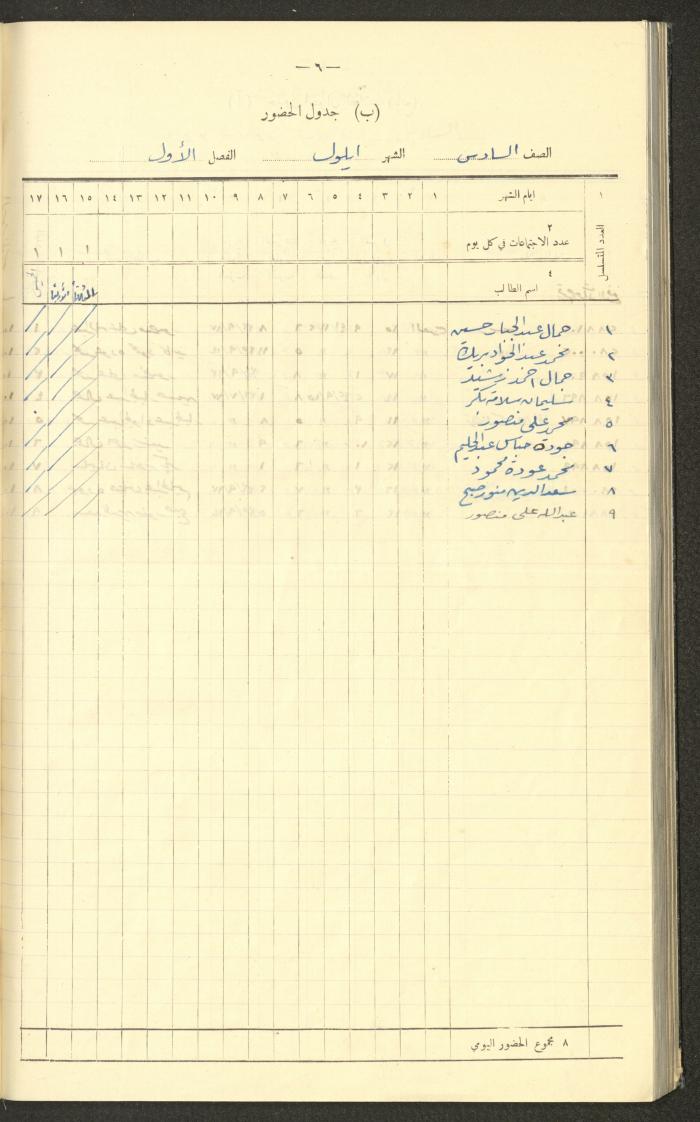 — ٦ —
(ب) جدول الحضور
الصف السادس الشهر ايلول الفصل الأول
١ ايام الشهر ١ ٢ ٣ ٤ ٥ ٦ ٧ ٨ ٩ ١٠ ١١ ١٢ ١٣ ١٤ ١٥ ١٦ ١٧
العدد المتسلسل
٢
عدد الاجتماعات في كل يوم ١ ١ ١
٤
اسم الطالب الثلاثاء الأربعاء الخميس
١ جمال عبد الجبار حسين
٢ محمد عبد الجواد
٣ جمال احمد
٤ سليمان سلامه
٥ محمد علي منصور
٦ جودة عباس عبد الحليم
٧ محمد عودة محمود
٨ سعد الدين منور
٩ عبد الله علي منصور
٨ مجموع الحضور اليومي